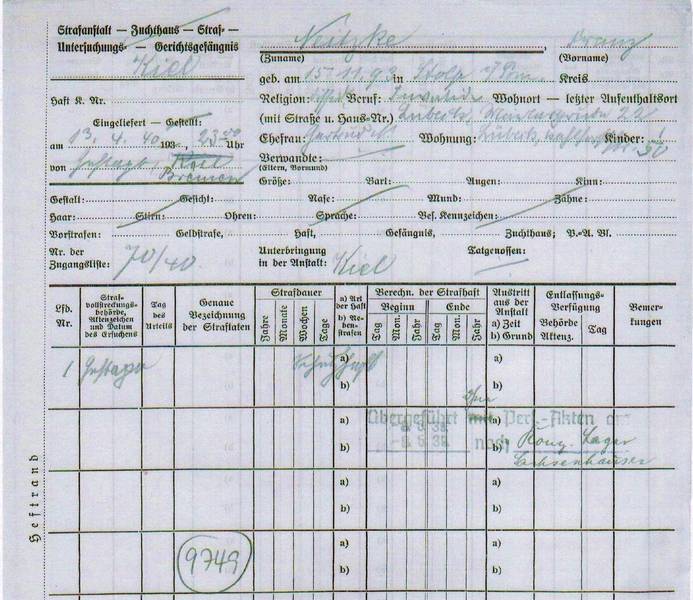 Strafanstalt — Zuchthaus — Straf- —
Untersuchungs- — Gerichtsgefängnis
Kiel
Neitzke Franz
(Zuname) (Vorname)
geb. am 15.11.93 in Stolp i/Pom. Kreis
Haft K. Nr.
Religion: Beruf: Invalide Wohnort — letzter Aufenthaltsort
(mit Straße u. Haus-Nr.) Lübeck, 22
Eingeliefert — Gestellt:
am 13. 4. 40 193 , 23 00 Uhr
Ehefrau: Gertrud Wohnung: Lübeck, Kinder: 1
50
von Gestapo, Kiel
Bremen
Verwandte:
(Eltern, Vormund)
Größe: Bart: Augen: Kinn:
Gestalt: Gesicht: Nase: Mund: Zähne:
Haar: Stirn: Ohren: Sprache: Bes. Kennzeichen:
Vorstrafen: Geldstrafe, Haft, Gefängnis, Zuchthaus; P.-A. Bl.
Nr. der
Zugangsliste: 70/40.
Unterbringung
in der Anstalt: Kiel
Tatgenossen:
Lfd.
Nr.
Straf-
vollstreckungs-
behörde,
Aktenzeichen
und Datum
des Ersuchens
Tag
des
Urteils
Genaue
Bezeichnung
der Straftaten
Strafdauer
Jahre
Monate
Wochen
Tage
a) Art
der Haft
b) Ne-
ben-
strafen
Berechn. der Strafhaft
Beginn Ende
Tag
Mon.
Jahr
Tag
Mon.
Jahr
Austritt
aus der
Anstalt
a) Zeit
b) Grund
Entlassungs-
Verfügung
Behörde
Aktenz.
Tag
Bemer-
kungen
1 Gestapo Schutzhaft a) a)
b) b)
ohne
Übergeführt mit Pers.-Akten am
a) a)
b) nach b) Konz. Lager
Sachsenhausen
a) a)
b) b)
9749
a) a)
b) b)
Heftrand